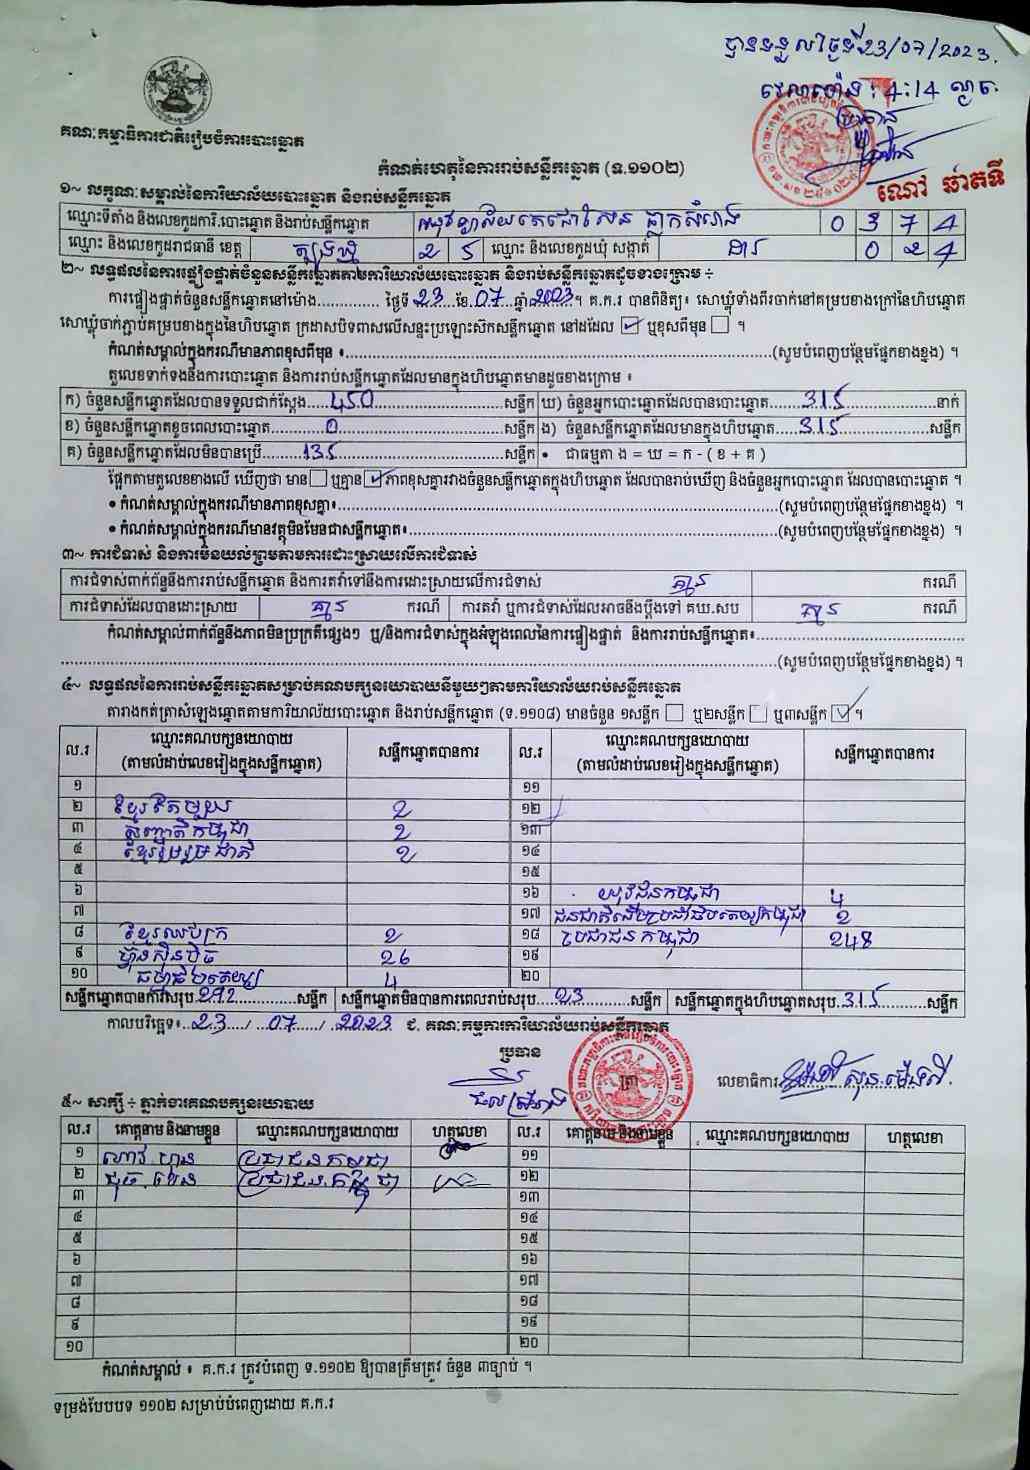 បានទទួលថ្ងៃទី23/07/2023.
វេលាម៉ោង: 4:14 ល្ងាច
ប្រធាន
ណៅ ឆាតទី
គណៈកម្មាធិការជាតិរៀបចំការបោះឆ្នោត
កំណត់ហេតុនៃការរាប់សន្លឹកឆ្នោត (ទ.១១០២)
១~ លក្ខណៈសម្គាល់នៃការិយាល័យបោះឆ្នោត និងរាប់សន្លឹកឆ្នោត
ឈ្មោះទីតាំង និងលេខកូដការិ.បោះឆ្នោត និងរាប់សន្លឹកឆ្នោត 0 3 7 4
ឈ្មោះ និងលេខកូដរាជធានី ខេត្ត ត្បូងឃ្មុំ 2 5 ឈ្មោះ និងលេខកូដឃុំ សង្កាត់ ដារ 0 2 4
២~ លទ្ធផលនៃការផ្ទៀងផ្ទាត់ចំនួនសន្លឹកឆ្នោតតាមការិយាល័យបោះឆ្នោត និងរាប់សន្លឹកឆ្នោតដូចខាងក្រោម ÷
ការផ្ទៀងផ្ទាត់ចំនួនសន្លឹកឆ្នោតនៅម៉ោង.............. ថ្ងៃទី 23 ខែ 07 ឆ្នាំ 2023 ។ គ.ក.រ បានពិនិត្យ៖ សោឃ្លុំទាំងពីរចាក់នៅគម្របខាងក្រៅនៃហិបឆ្នោត
សោឃ្លុំចាក់ភ្ជាប់គម្របខាងក្នុងនៃហិបឆ្នោត ក្រដាសបិទពាសលើសន្ទះប្រឡោះស៊កសន្លឹកឆ្នោត នៅដដែល ☑ ឬខុសពីមុន ☐ ។
កំណត់សម្គាល់ក្នុងករណីមានភាពខុសពីមុន ៖..............(សូមបំពេញបន្ថែមផ្នែកខាងខ្នង) ។
តួលេខទាក់ទងនឹងការបោះឆ្នោត និងការរាប់សន្លឹកឆ្នោតដែលមានក្នុងហិបឆ្នោតមានដូចខាងក្រោម ៖
ក) ចំនួនសន្លឹកឆ្នោតដែលបានទទួលជាក់ស្តែង....450....សន្លឹក ឃ) ចំនួនអ្នកបោះឆ្នោតដែលបានបោះឆ្នោត....315....នាក់
ខ) ចំនួនសន្លឹកឆ្នោតខូចពេលបោះឆ្នោត....0....សន្លឹក ង) ចំនួនសន្លឹកឆ្នោតដែលមានក្នុងហិបឆ្នោត....315....សន្លឹក
គ) ចំនួនសន្លឹកឆ្នោតដែលមិនបានប្រើ....135....សន្លឹក • ជាធម្មតា ង = ឃ = ក - ( ខ + គ )
ផ្អែកតាមតួលេខខាងលើ ឃើញថា មាន ☐ ឬគ្មាន ☑ ភាពខុសគ្នារវាងចំនួនសន្លឹកឆ្នោតក្នុងហិបឆ្នោត ដែលបានរាប់ឃើញ និងចំនួនអ្នកបោះឆ្នោត ដែលបានបោះឆ្នោត ។
• កំណត់សម្គាល់ក្នុងករណីមានភាពខុសគ្នា៖..............(សូមបំពេញបន្ថែមផ្នែកខាងខ្នង) ។
• កំណត់សម្គាល់ក្នុងករណីមានវត្ថុមិនមែនជាសន្លឹកឆ្នោត៖..............(សូមបំពេញបន្ថែមផ្នែកខាងខ្នង) ។
៣~ ការជំទាស់ និងការមិនយល់ព្រមតាមការដោះស្រាយលើការជំទាស់
ការជំទាស់ពាក់ព័ន្ធនឹងការរាប់សន្លឹកឆ្នោត និងការតវ៉ាទៅនឹងការដោះស្រាយលើការជំទាស់ គ្មាន ករណី
ការជំទាស់ដែលបានដោះស្រាយ គ្មាន ករណី ការតវ៉ា ឬការជំទាស់ដែលអាចនឹងប្តឹងទៅ គឃ.សប គ្មាន ករណី
កំណត់សម្គាល់ពាក់ព័ន្ធនឹងភាពមិនប្រក្រតីផ្សេងៗ ឬ/និងការជំទាស់ក្នុងអំឡុងពេលនៃការផ្ទៀងផ្ទាត់ និងការរាប់សន្លឹកឆ្នោត៖..............
..............(សូមបំពេញបន្ថែមផ្នែកខាងខ្នង) ។
៤~ លទ្ធផលនៃការរាប់សន្លឹកឆ្នោតសម្រាប់គណបក្សនយោបាយនីមួយៗតាមការិយាល័យរាប់សន្លឹកឆ្នោត
តារាងកត់ត្រាសំឡេងឆ្នោតតាមការិយាល័យបោះឆ្នោត និងរាប់សន្លឹកឆ្នោត (ទ.១១០៨) មានចំនួន ១សន្លឹក ☐ ឬ២សន្លឹក ☐ ឬ៣សន្លឹក ☑ ។
ល.រ ឈ្មោះគណបក្សនយោបាយ (តាមលំដាប់លេខរៀងក្នុងសន្លឹកឆ្នោត) សន្លឹកឆ្នោតបានការ ល.រ ឈ្មោះគណបក្សនយោបាយ (តាមលំដាប់លេខរៀងក្នុងសន្លឹកឆ្នោត) សន្លឹកឆ្នោតបានការ
១ ១១
២ ខ្មែរតែមួយ 2 ១២
៣ សញ្ជាតិកម្ពុជា 2 ១៣
៤ ខ្មែររួបរួមជាតិ 2 ១៤
៥ ១៥
៦ ១៦ យុវជនកម្ពុជា 4
៧ ១៧ ជនជាតិដើមប្រជាធិបតេយ្យកម្ពុជា 2
៨ ខ្មែរឈប់ក្រ 2 ១៨ ប្រជាជនកម្ពុជា 248
៩ ហ្វ៊ុនស៊ិនប៉ិច 26 ១៩
១០ ធម្មាធិបតេយ្យ 4 ២០
សន្លឹកឆ្នោតបានការសរុប 292 សន្លឹក សន្លឹកឆ្នោតមិនបានការពេលរាប់សរុប 23 សន្លឹក សន្លឹកឆ្នោតក្នុងហិបឆ្នោតសរុប 315 សន្លឹក
កាលបរិច្ឆេទ៖ 23 / 07 / 2023 ជ. គណៈកម្មការការិយាល័យរាប់សន្លឹកឆ្នោត
ប្រធាន
លេខាធិការ
៥~ សាក្សី ÷ ភ្នាក់ងារគណបក្សនយោបាយ
ល.រ គោត្តនាម និងនាមខ្លួន ឈ្មោះគណបក្សនយោបាយ ហត្ថលេខា ល.រ គោត្តនាម និងនាមខ្លួន ឈ្មោះគណបក្សនយោបាយ ហត្ថលេខា
១ ប្រជាជនកម្ពុជា ១១
២ ប្រជាជនកម្ពុជា ១២
៣ ១៣
៤ ១៤
៥ ១៥
៦ ១៦
៧ ១៧
៨ ១៨
៩ ១៩
១០ ២០
កំណត់សម្គាល់ ៖ គ.ក.រ ត្រូវបំពេញ ទ.១១០២ ឱ្យបានត្រឹមត្រូវ ចំនួន ៣ច្បាប់ ។
ទម្រង់បែបបទ ១១០២ សម្រាប់បំពេញដោយ គ.ក.រ